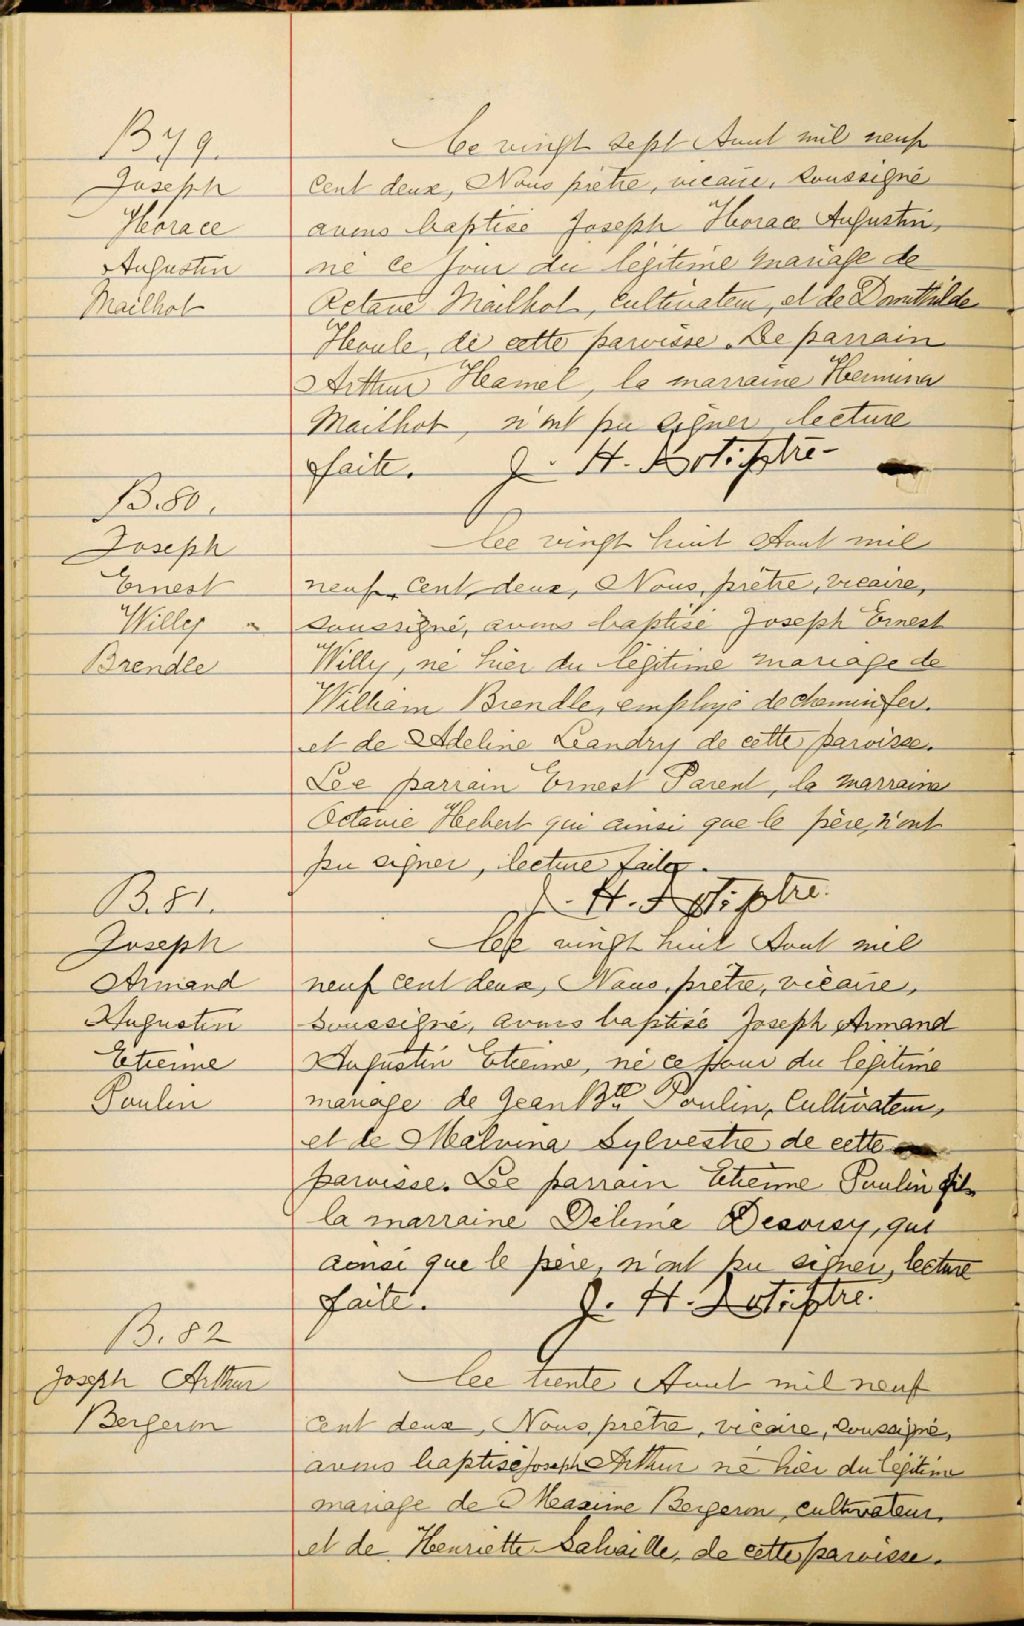 B 79.
Joseph
Horace
Augustin
Mailhot
Le vingt sept Aout mil neuf
cent deux, Nous prêtre, vicaire, soussigné
avons baptisé Joseph Horace Augustin,
né ce jour du légitime mariage de
Octave Mailhot, cultivateur, et de Domithilde
Houle, de cette paroisse. Le parrain
Arthur Hamel, la marraine Hermina
Mailhot, n'ont pu signer, lecture
faite. J. H. ptre-
B. 80.
Joseph
Ernest
Willy
Brendle
Le vingt huit Aout mil
neuf cent deux, Nous, prêtre, vicaire,
soussigné, avons baptisé Joseph Ernest
Willy, né hier du légitime mariage de
William Brendle, employé de chemin fer.
et de Adeline Leandry de cette paroisse.
Le parrain Ernest Parent, la marraine
Octavie Hebert qui ainsi que le père, n'ont
pu signer, lecture faite.
J. H. ptre.
B. 81.
Joseph
Armand
Augustin
Etienne
Poulin
Le vingt huit Aout mil
neuf cent deux, Nous, prêtre, vicaire,
soussigné, avons baptisé Joseph Armand
Augustin Etienne, né ce jour du légitime
mariage de Jean Bte Poulin, Cultivateur,
et de Malvina Sylvestre de cette
paroisse. Le parrain Etienne Poulin fils
la marraine Délima Desorsy, qui
ainsi que le père, n'ont pu signer, lecture
faite. J. H. ptre.
B. 82
Joseph Arthur
Bergeron
Le trente Aout mil neuf
cent deux, Nous, prêtre, vicaire, soussigné,
avons baptisé Joseph Arthur né hier du légitime
mariage de Maxime Bergeron, cultivateur,
et de Henriette Salvaille, de cette paroisse.